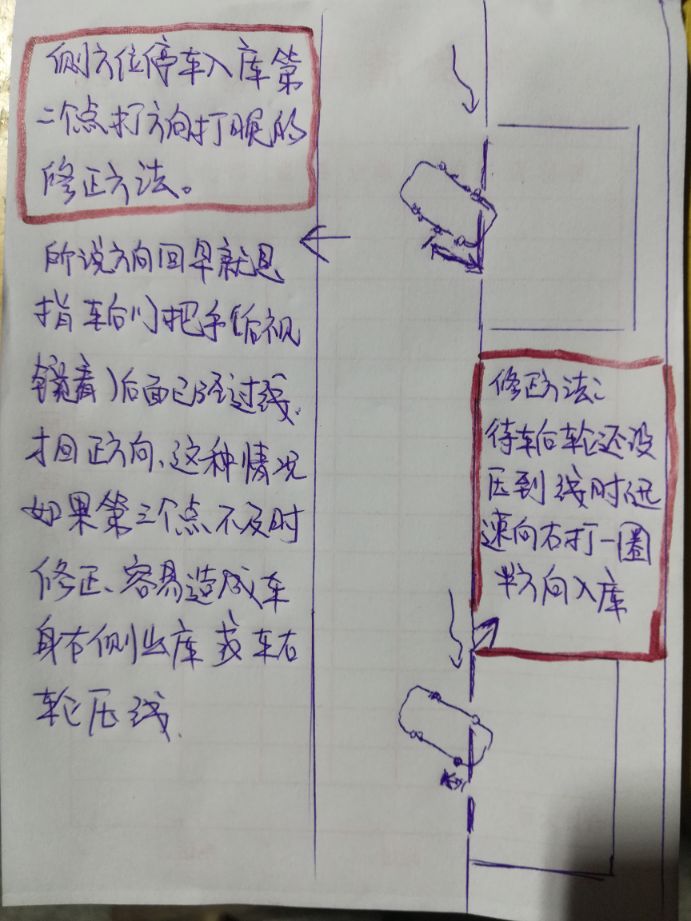 侧方位停车入库第
二个点打方向打晚的
修正方法。
所说方向回早就是
指车后门把手(后视
镜看)后面已经过线
才回正方向、这种情况
如果第三个点不及时
修正、容易造成车
身右侧出库或车右
轮压线.
修正方法:
待车后轮还没
压到线时迅
速向右打一圈
半方向入库